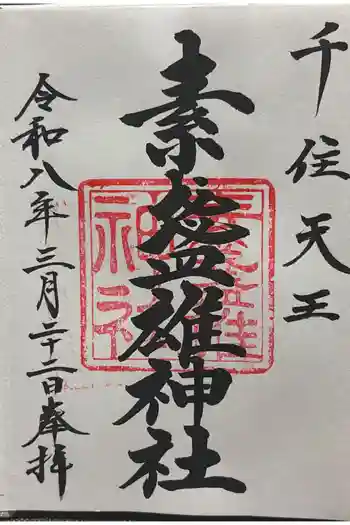 千住天王
素盞雄神社
令和八年三月二十二日奉拝